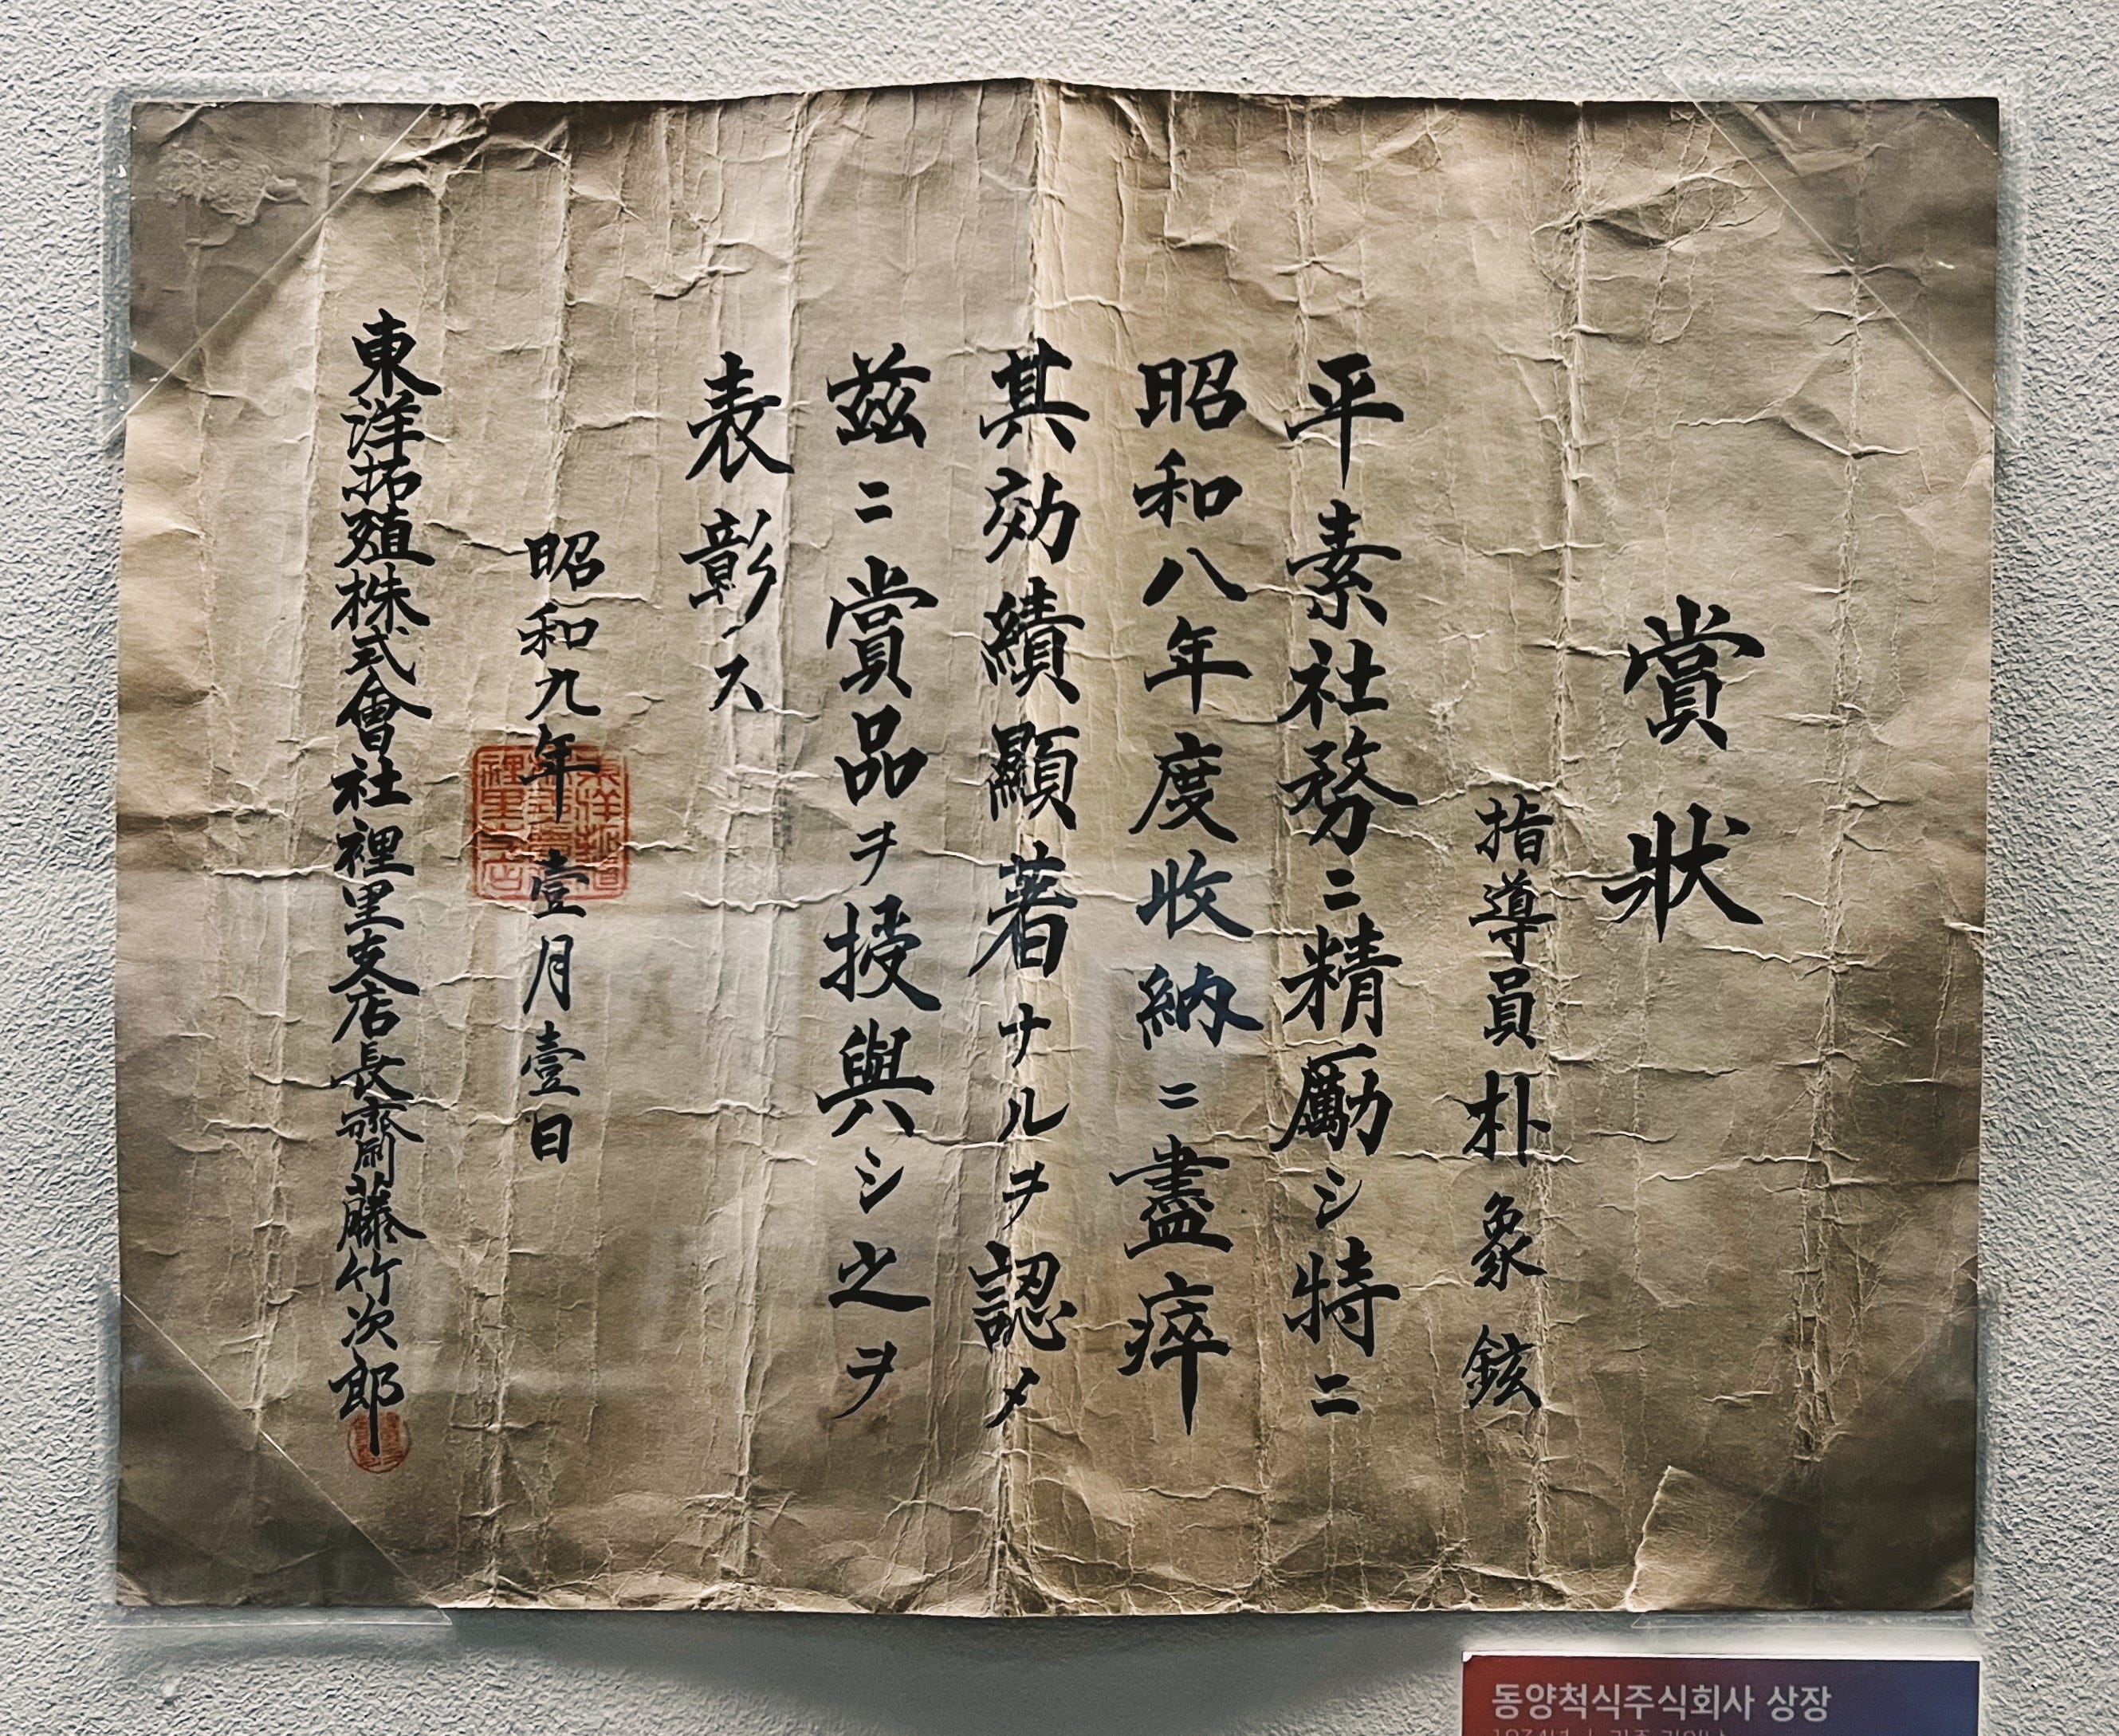 賞狀
指導員 朴象鉉
平素社務ニ精勵シ特ニ
昭和八年度收納ニ盡瘁
其効績顯著ナルヲ認メ
茲ニ賞品ヲ授與シ之ヲ
表彰ス
昭和九年壹月壹日
東洋拓殖株式會社裡里支店長齋藤竹次郎
동양척식주식회사 상장